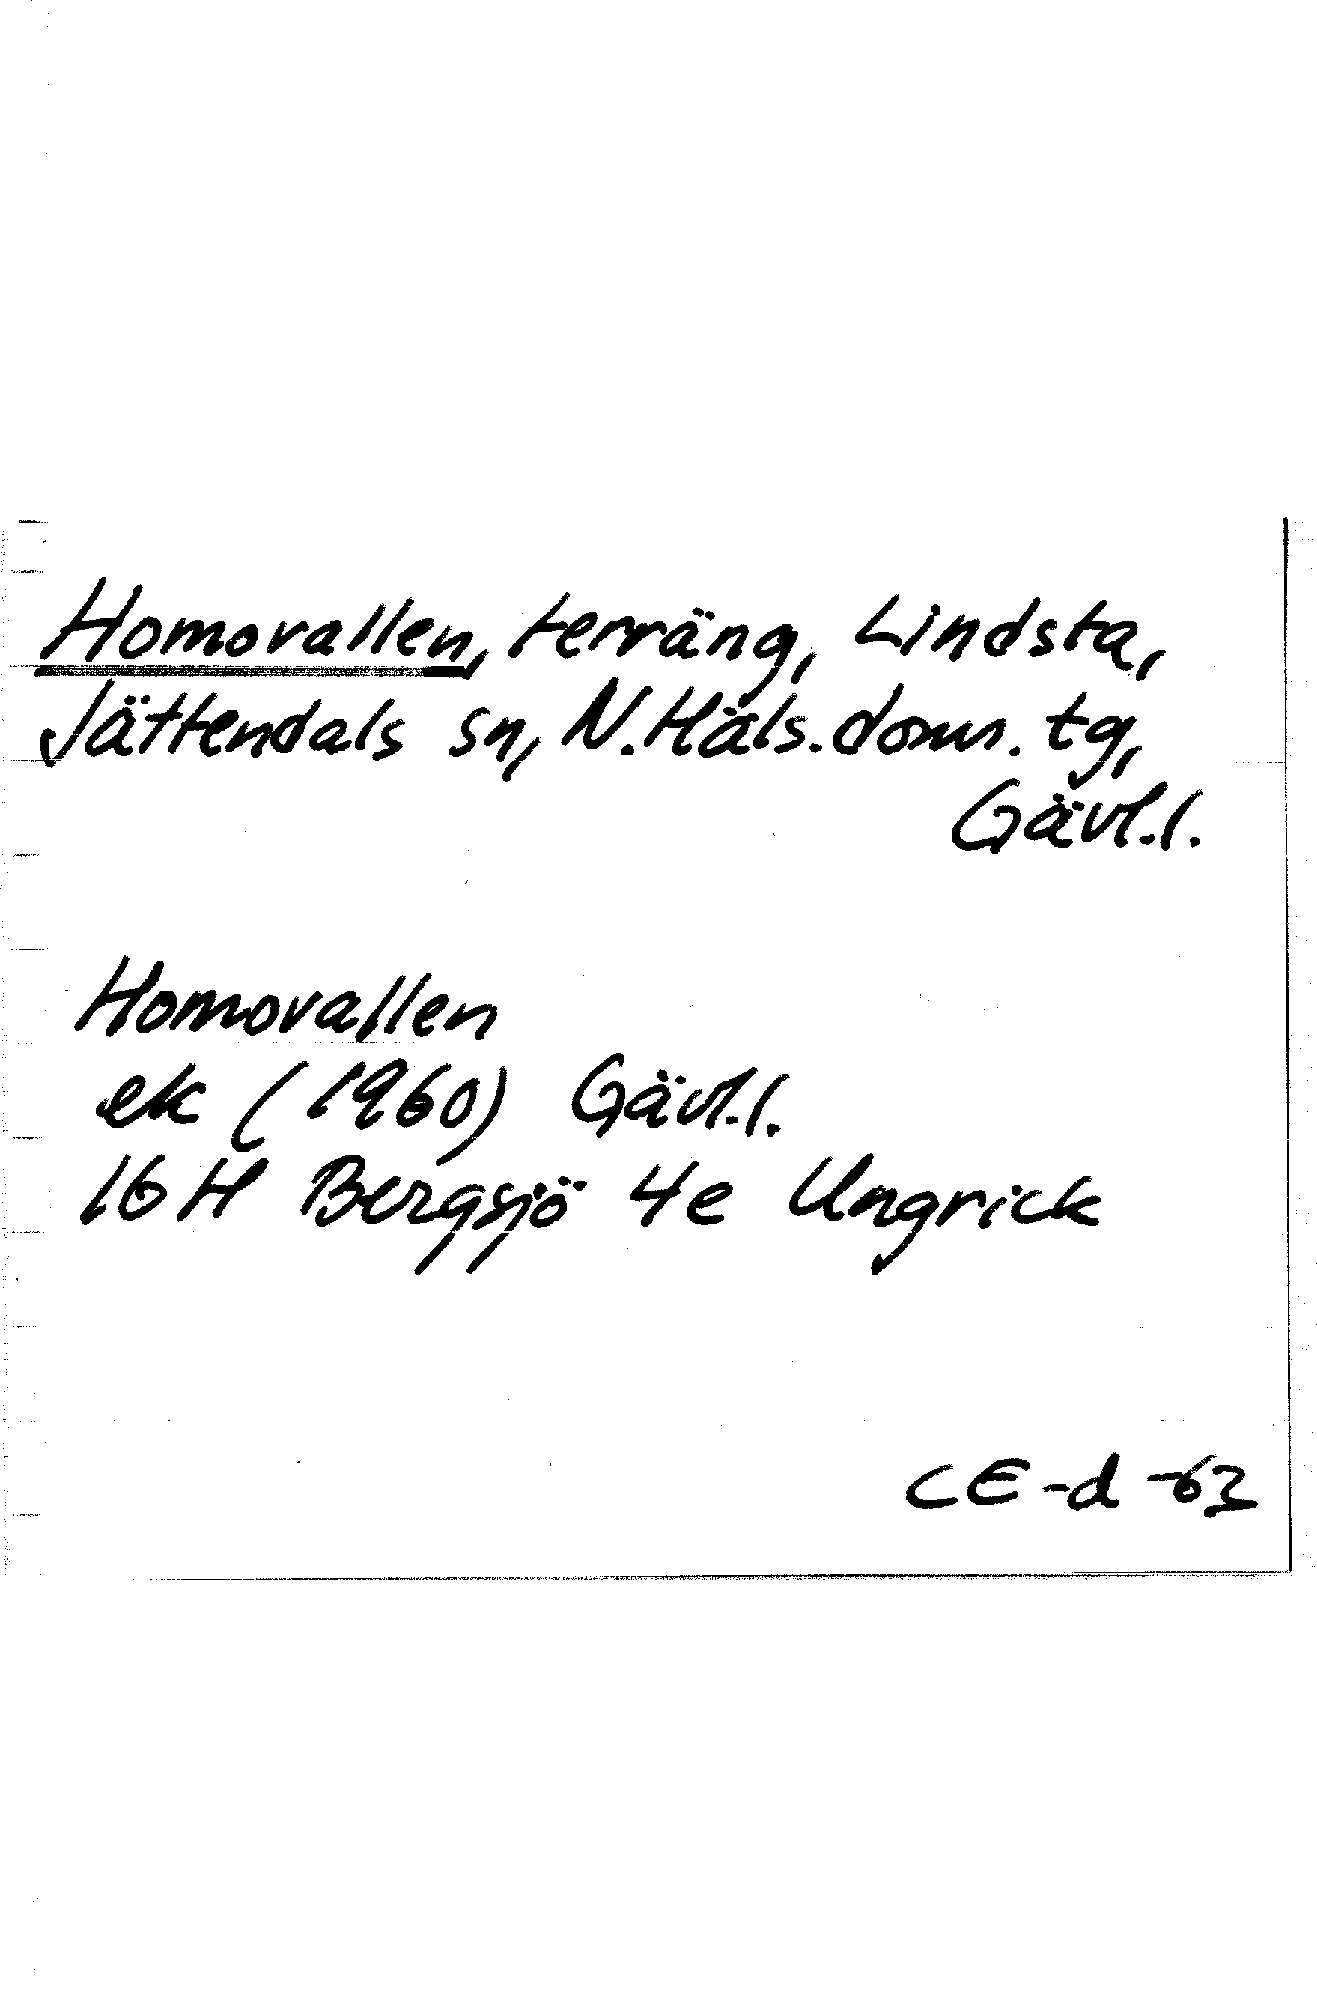 Homovallen, terräng, Lindsta,
Jättendals sn, N. Häls. doms. tg,
Gävl.l.
Homovallen
ek (1960) Gävl.l.
16 H Bergsjö 4e Ungrick
CE-d-63